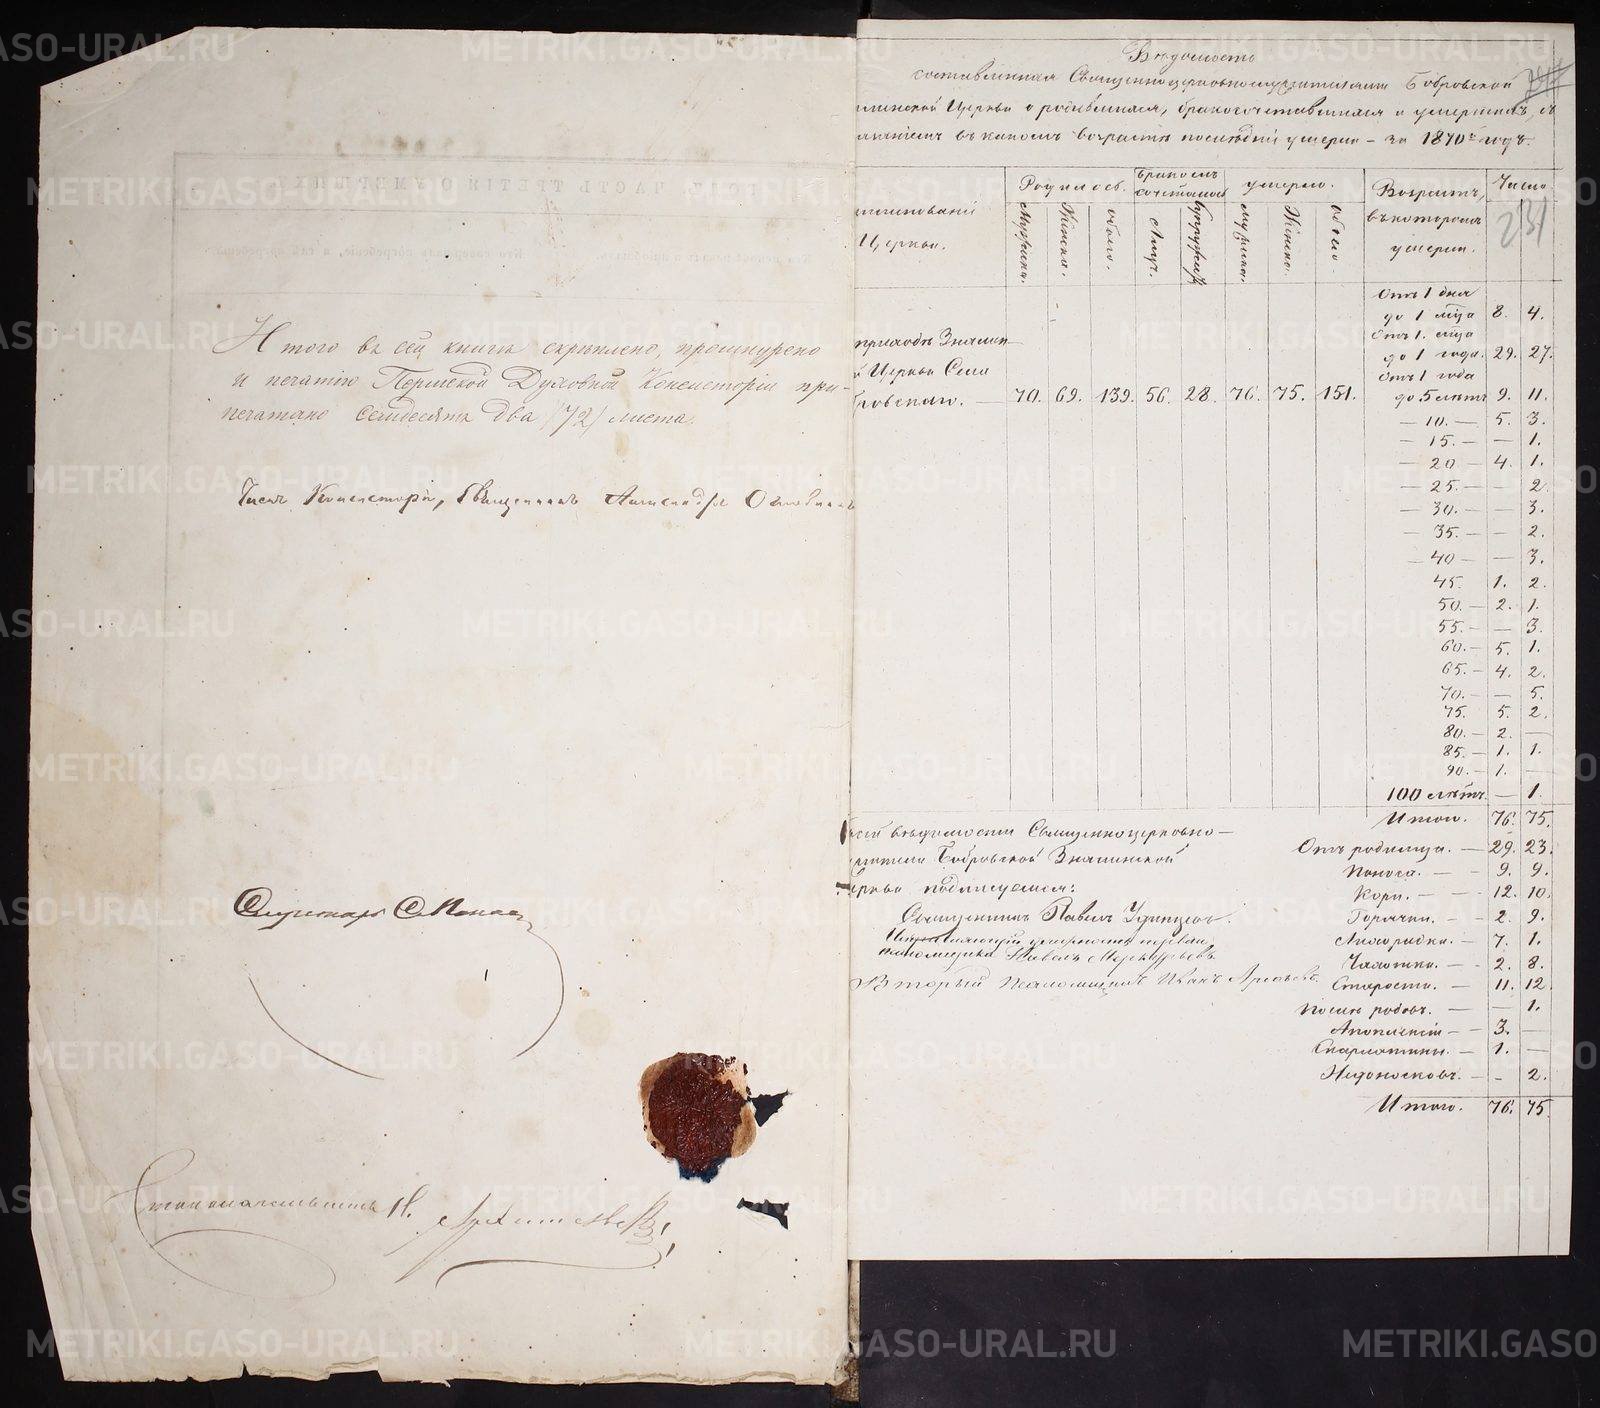 Итого въ сей книгѣ скрѣплено, прошнурено
и печатію Пермской Духовной Консисторіи при-
печатано Семдесятъ два /72/ листа.
Членъ Консисторіи, Священникъ Александръ
Секретарь
Столоначальникъ Н.
Вѣдомость
составленная Священноцерковнослужителями Бобровской
менской Церкви о родившихся, бракосочетавшихся и умершихъ, съ
въ какомъ возрастѣ послѣдніе умерли – за 1870й годъ.
менованіе
Церкви.
Родилось.
Бракомъ
сочеталось
умерло.
Возрастъ,
въ которомъ
умерли.
Число
231
Мужска.
Женска.
обоего.
Лицъ.
Супружествъ
мужска.
Женска.
обоего.
приходѣ Знамен-
й Церкви Села
бровскаго. – 70. 69. 139. 56. 28. 76. 75. 151.
Отъ 1 дня
до 1 мѣсца 8. 4.
Отъ 1. мѣсца
до 1 года. 29. 27.
Отъ 1 года
до 5 лѣтъ 9. 11.
– 10. – 5. 3.
– 15. – – 1.
– 20 – 4. 1.
– 25. – – 2.
– 30. – – 3.
– 35. – – 2.
– 40 – – 3.
45. 1. 2.
50. – 2. 1.
55. – – 3.
60. – 5. 1.
65. – 4. 2.
70. – – 5.
75. 5. 2.
80. – 2. –
85. – 1. 1.
90. – 1. –
100 лѣтъ. – 1.
Итого. 76. 75.
сей вѣдомости Священноцерковно-
служители Бобровской Знаменской
Церкви подписуемся:
Священникъ Павелъ Удинцевъ.
должность перваго
псаломщика Павелъ Меркурьевъ
Второй псаломщикъ Иванъ
Отъ родимца. – 29. 23.
Поноса. – – 9. 9.
Кори. – – 12. 10.
Горячки. – – 2. 9.
Лихорадки. – 7. 1.
Чахотки. – – 2. 8.
Старости. – 11. 12.
Послѣ родовъ. – – 1.
Апоплексіи – – 3. –
Скарлатины. – 1. –
Недоносковъ. – – 2.
Итого. 76. 75
METRIKI.GASO-URAL.RU